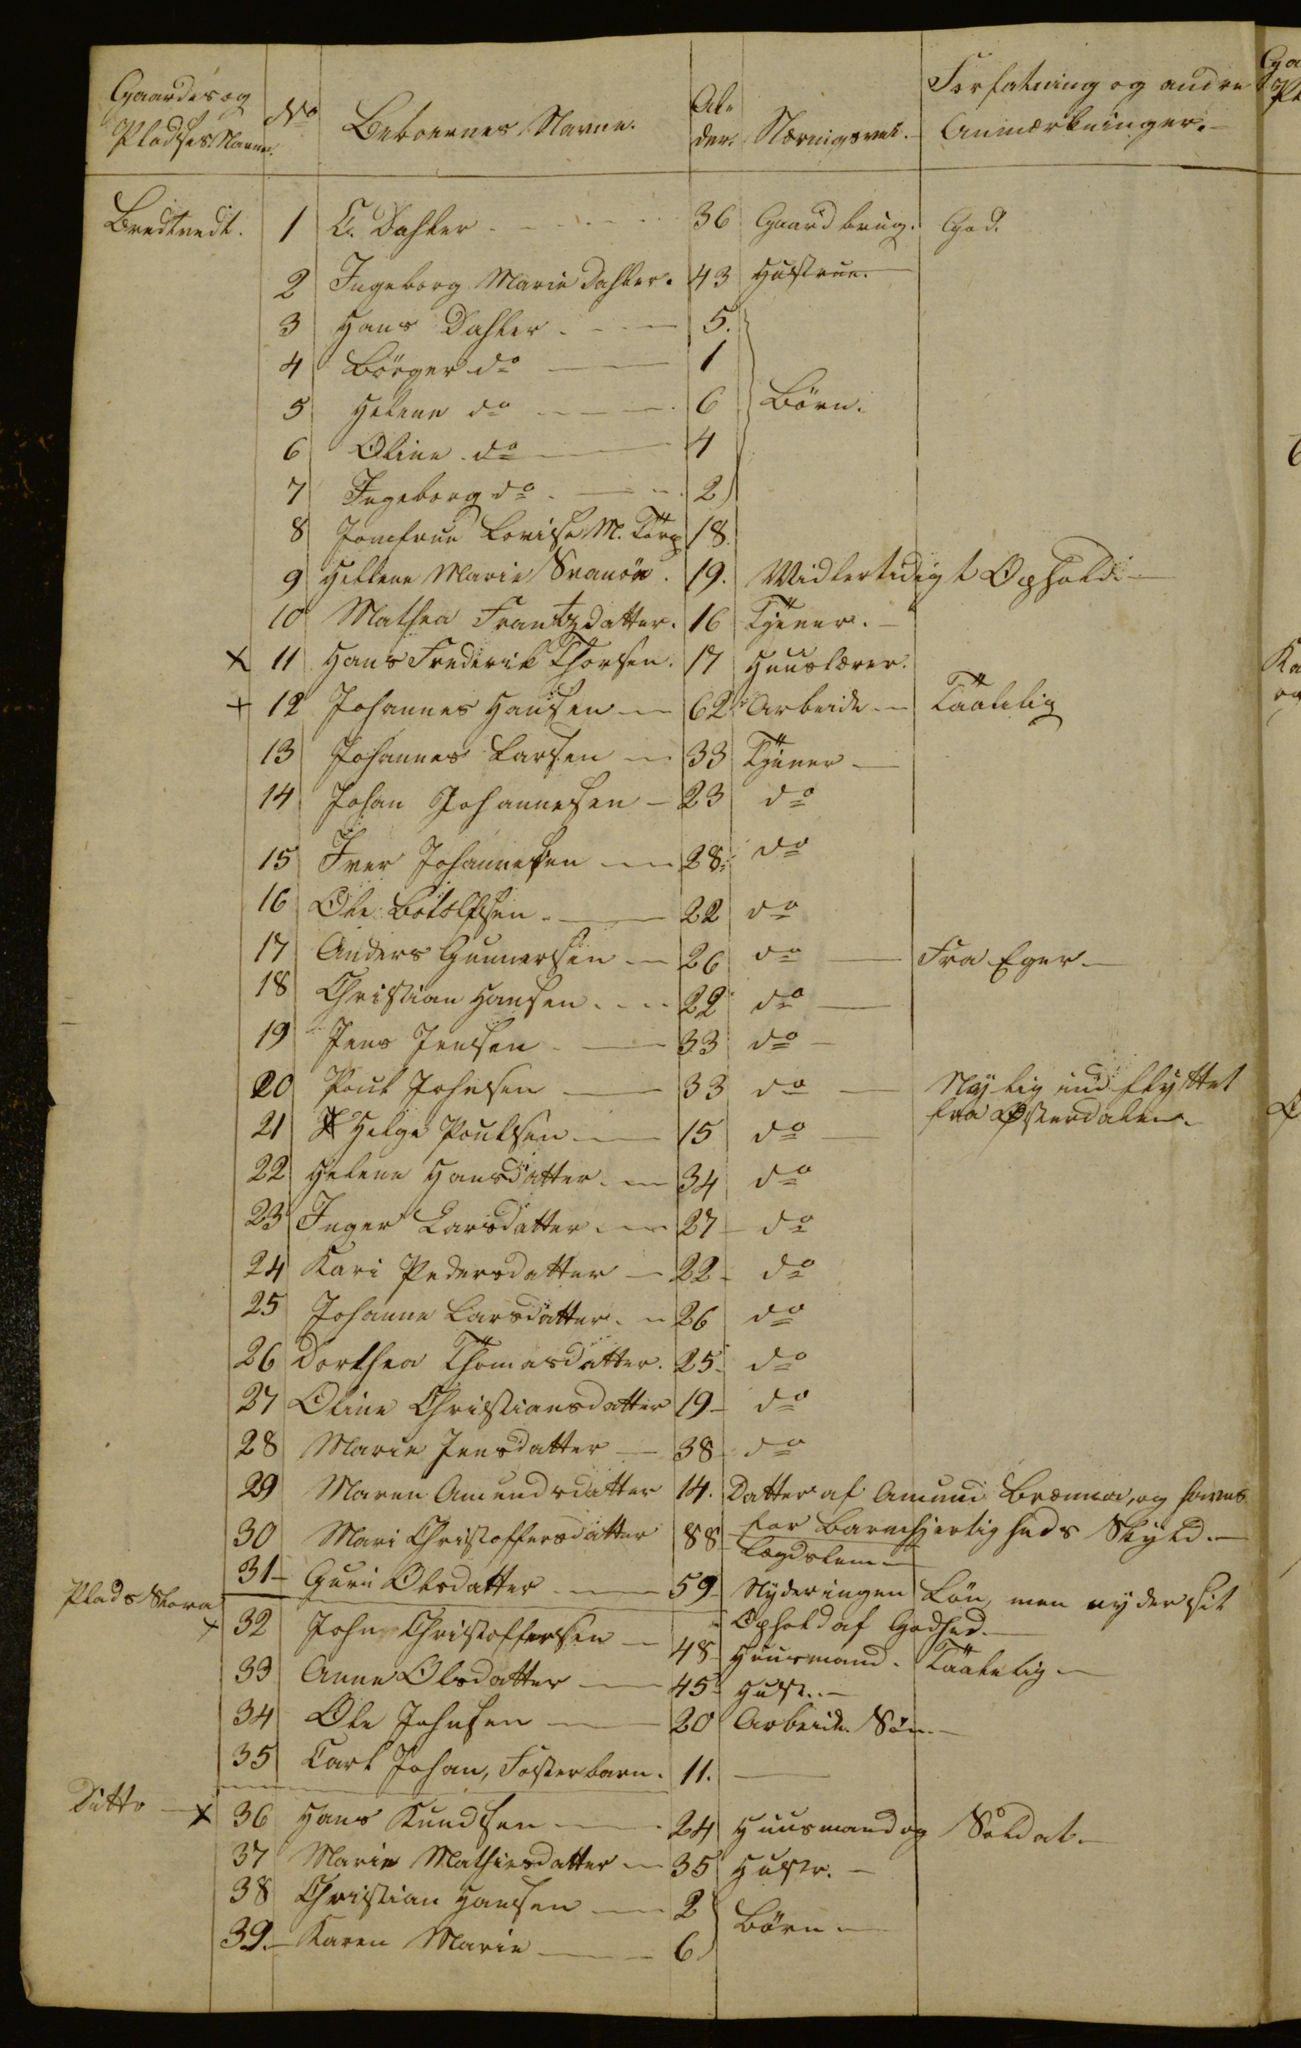 Gaardes og Pladses Navne. No Beboernes Navne. Alder. Næringsvei. Forfatning og andre Anmærkninger.
Bredtvedt. 1 C. Dahler 36 Gaardbrug. God.
2 Ingeborg Marie Dahler. 43 Hustrue.
3 Hans Dahler 5.
4 Börger do 1
5 Helene do 6 Börn.
6 Oline do 4
7 Ingeborg do 2
8 Jomfrue Lovise M. Torp 18.
9 Hellene Marie Svanöe. 19. Midlertidigt Ophold.
10 Mathea Frantzdatter. 16 Tjener.
x 11 Hans Frederik Thorsen. 17 Huuslærer.
+ 12 Johannes Hansen 62 Arbeide Taalelig
13 Johannes Larsen 33 Tjener
14 Johan Johannesen 23 do
15 Iver Johannesen 28 do
16 Ole Botolfsen 22 do
17 Anders Gunnersen 26 do Fra Eger
18 Christian Hansen 22 do
19 Jens Jensen 33 do
20 Poul Johnsen 33 do Nylig indflyttet
21 Helge Poulsen 15 do fra Østerdalen
22 Helene Hansdatter 34 do
23 Inger Larsdatter 27 do
24 Kari Pedersdatter 22 do
25 Johanne Larsdatter 26 do
26 Dorthea Thomasdatter. 25 do
27 Oline Christiansdatter 19 do
28 Marie Jensdatter 38 do
29 Maren Amundsdatter 14. Datter af Amund Brænna, og haves
for Barmhjertigheds Skyld.
30 Mari Christoffersdatter 88 Lægdslem
31 Guri Olsdatter 59 Nyder ingen Løn, men nyder sit
Ophold af Godhed.
Plads Stora x 32 John Christoffersen 48 Huusmand. Taalelig
33 Anne Olsdatter 45 Hust.
34 Ole Johnsen 20 Arbeide. Søn
35 Carl Johan, Fosterbarn. 11.
Ditto x 36 Hans Knudsen 24 Huusmand og Soldat.
37 Marie Mathiesdatter 35 Hustr.
38 Christian Hansen 2 Börn
39. Karen Marie 6